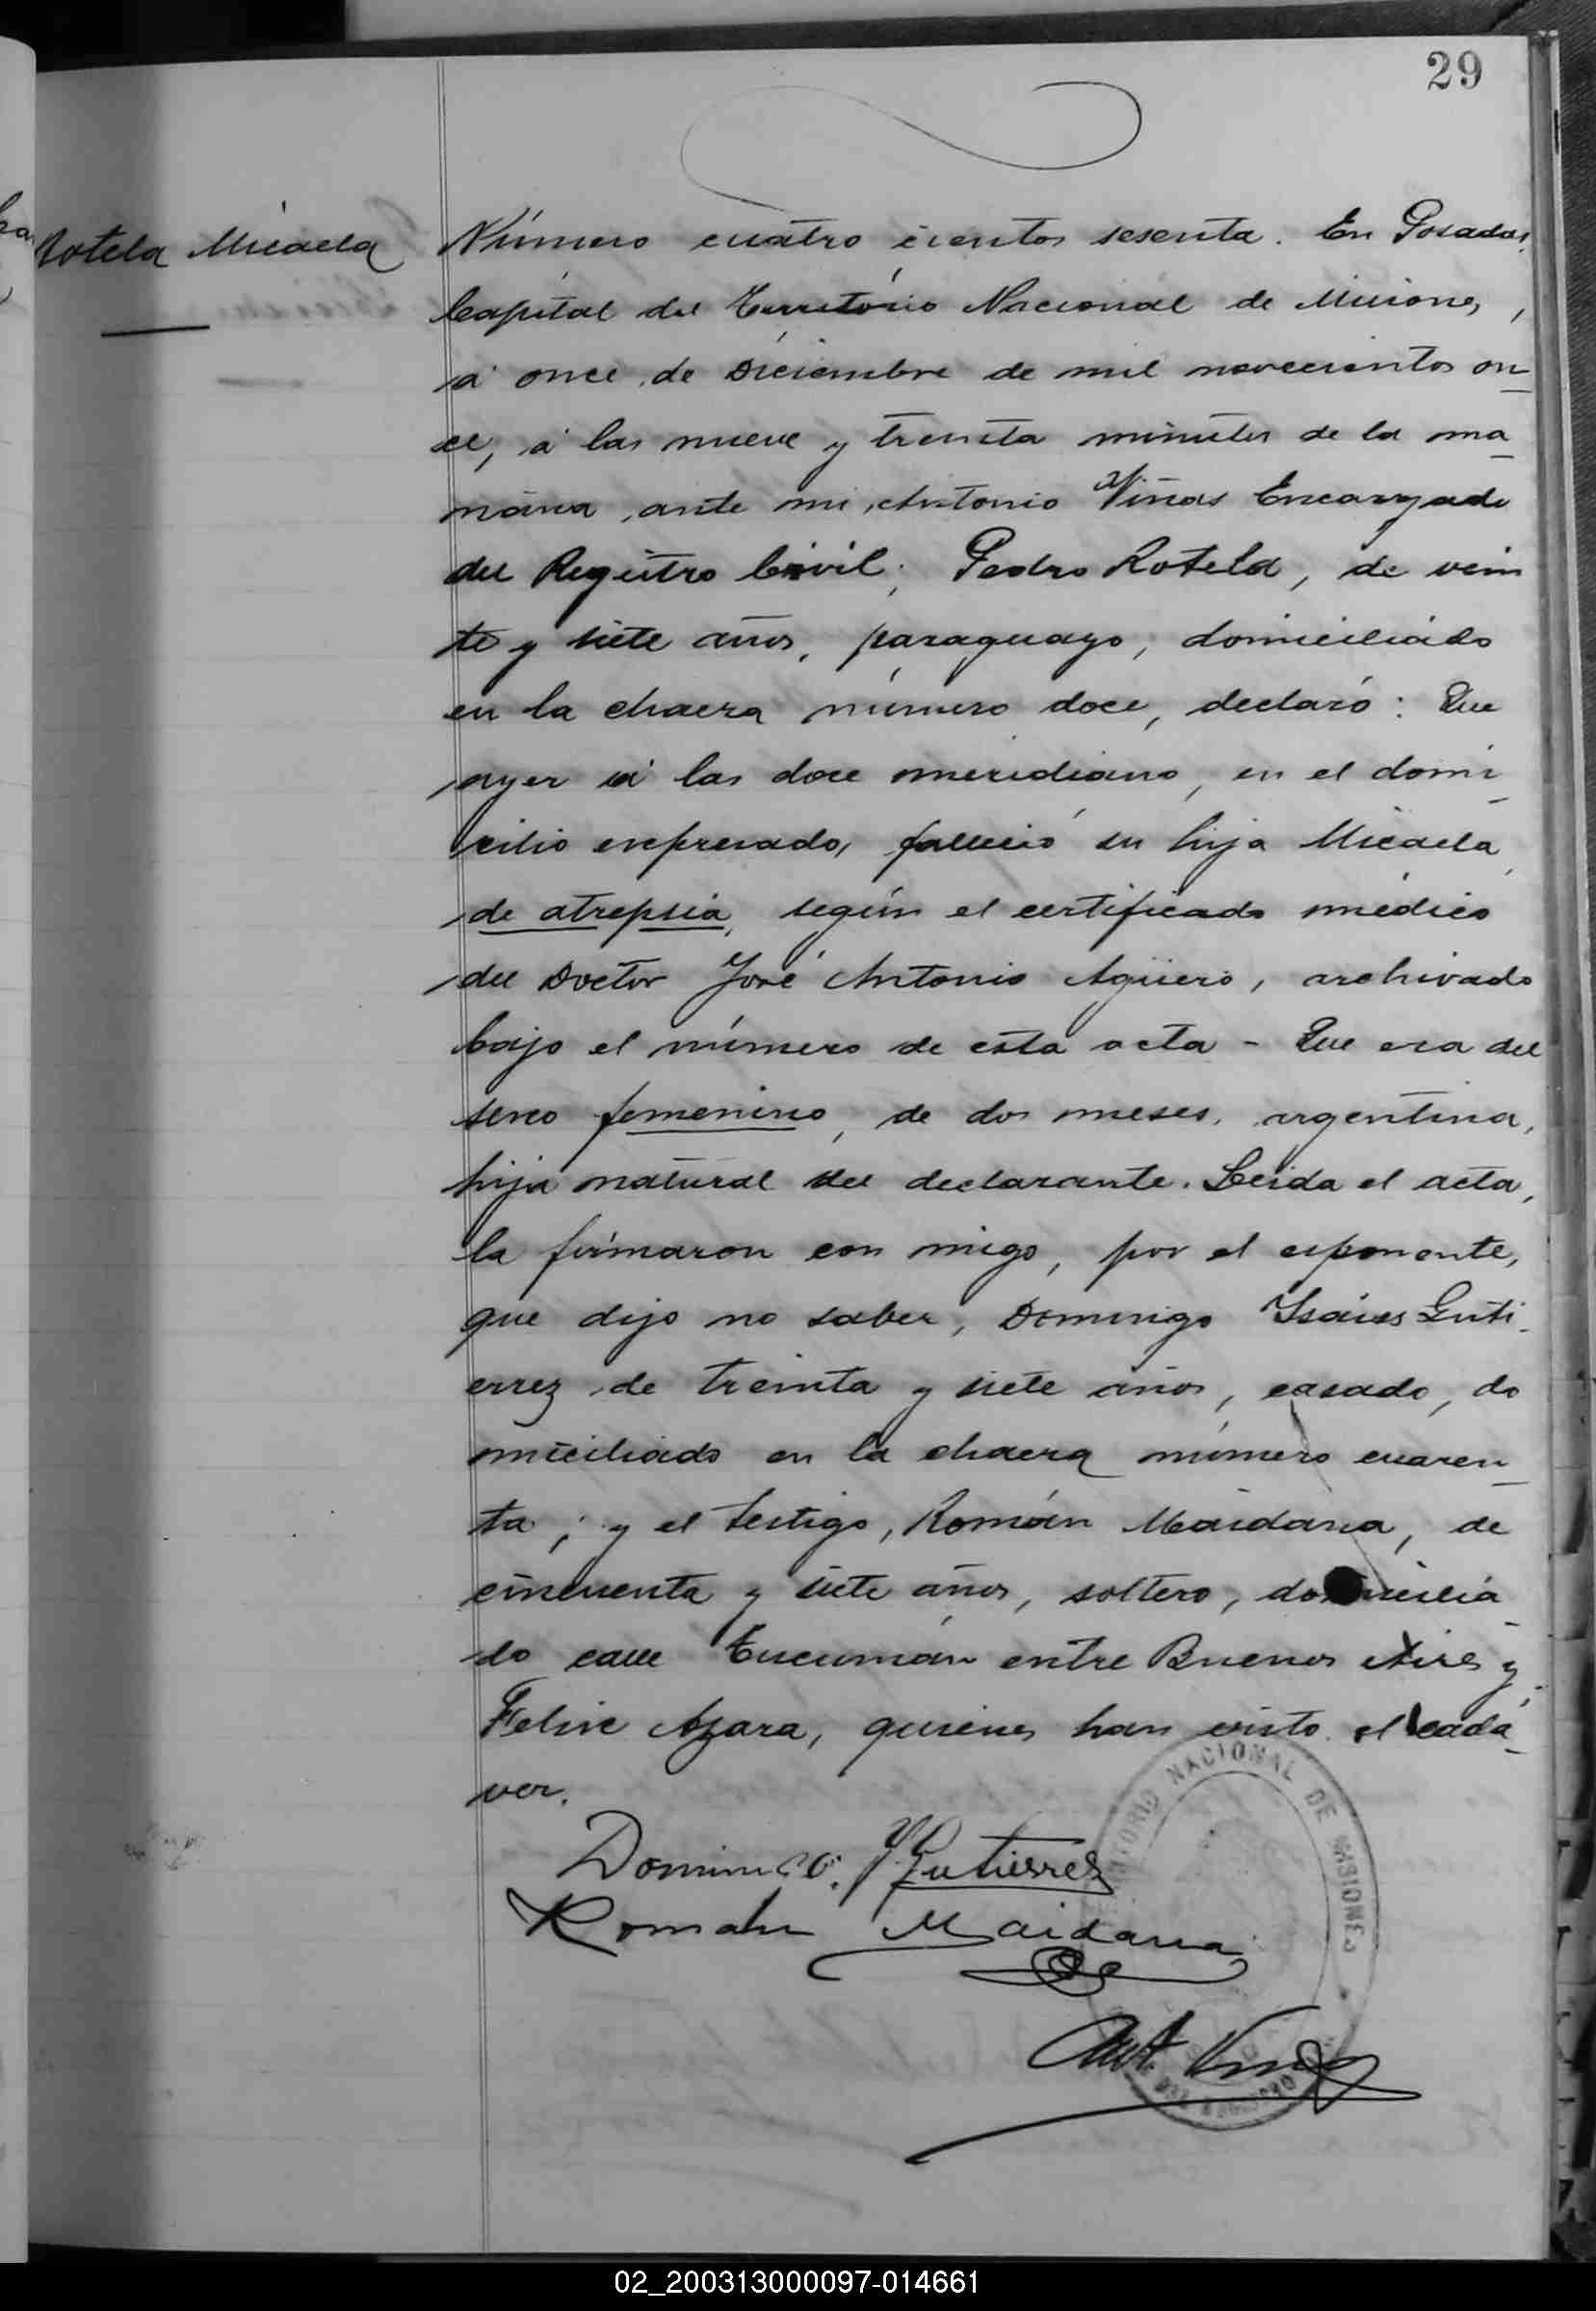 29
Rotela Micaela
Número cuatro cientos sesenta. En Posadas,
Capital del Territorio Nacional de Misiones,
á once de Diciembre de mil novecientos on-
ce, á las nueve y treinta minutos de la ma-
ñana, ante mi, Antonio Viñas Encargado
del Registro Civil; Pedro Rotela, de vein
te y siete años, paraguayo, domiciliado
en la chacra número doce, declaró: Que
ayer á las doce meridiano, en el domi-
cilio expresado, falleció su hija Micaela,
de atrepsia, según el certificado médico
del Doctor José Antonio Agüero, archivado
bajo el número de esta acta - Que era del
sexo femenino, de dos meses, argentina,
hija natural del declarante. Leida el acta,
la firmaron con migo, por el esponente,
que dijo no saber, Domingo Guti-
errez, de treinta y siete años, casado, do
miciliado en la chacra número cuaren-
ta; y el testigo, Román Maidana, de
cincuenta y siete años, soltero, domicilia-
do calle Tucumán entre Buenos Aires y
Felix Azara, quienes han visto el cadá-
ver.
Domingo Y Gutierrez
Roman Maidana
Ant. Viñas
TERRITORIO NACIONAL DE MISIONES
02_200313000097-014661